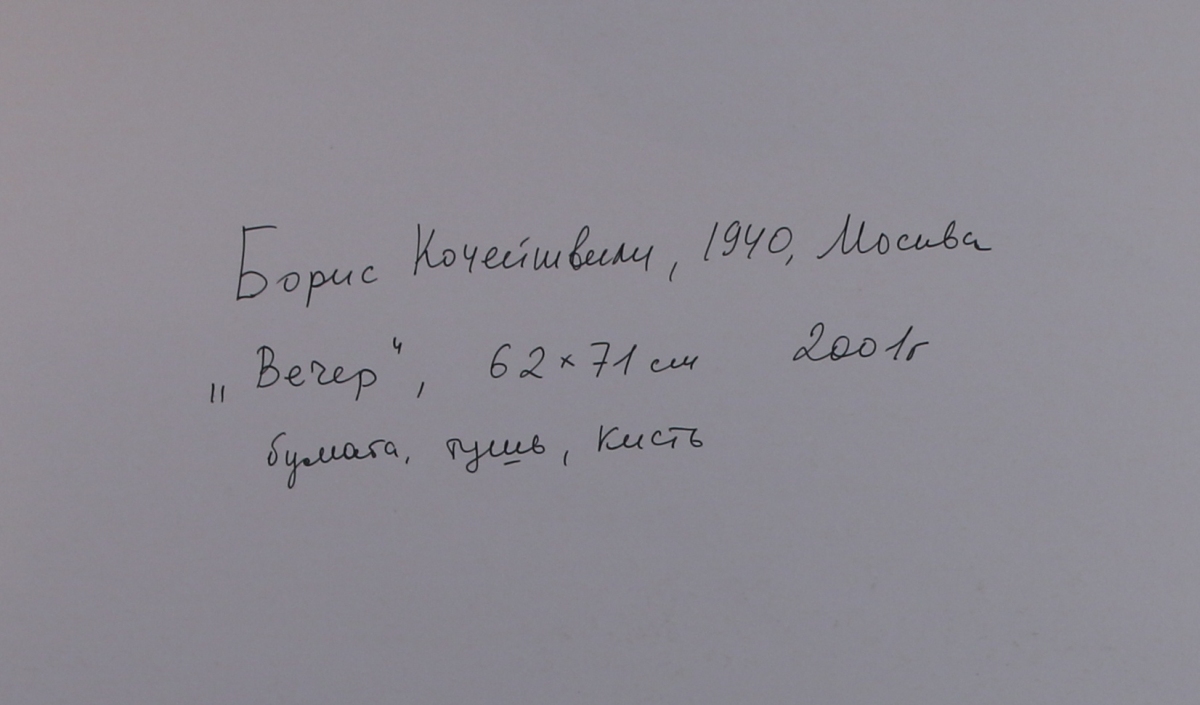 Борис Кочейшвили, 1940, Москва
„Вечер“, 62×71 см 2001г
бумага, тушь, кисть